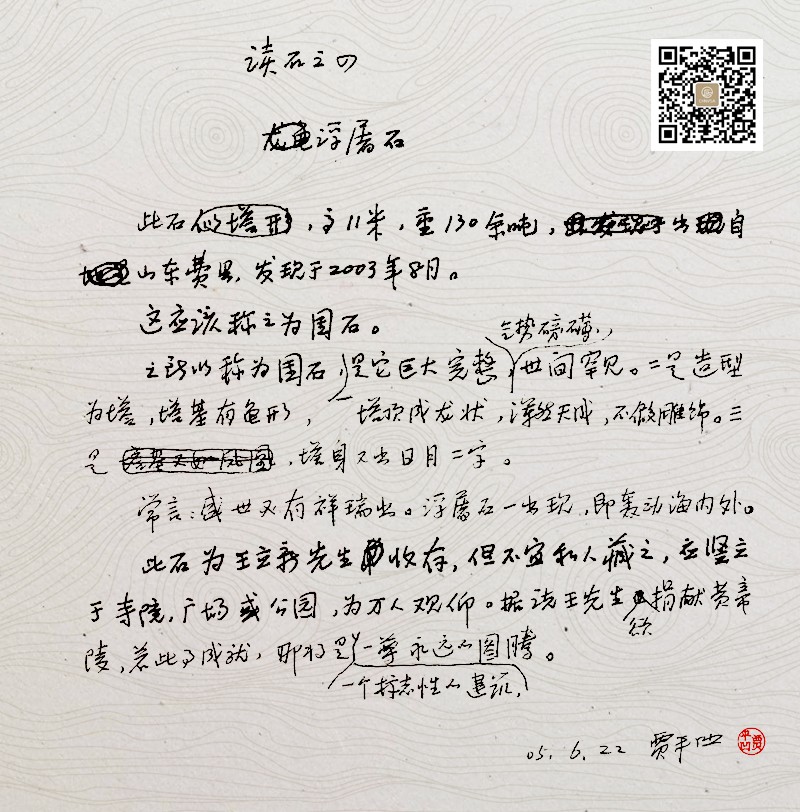 读石之四
浮屠石
此石似塔形，高11米，重130余吨，出自
山东费县，发现于2003年8月。
这应该称之为国石。
气势磅礴，
之所以称为国石，一是它巨大完整，世间罕见。二是造型
为塔，塔基有龟形，塔顶成龙状，浑然天成，不假雕饰。三
是，塔身又出日月二字。
常言：盛世必有祥瑞出。浮屠石一出现，即轰动海内外。
此石为王立新先生收存，但不宜私人藏之，应竖立
于寺院，广场或公园，为万人观仰。据说王先生捐献黄帝
欲
陵，若此事成就，那将是一尊永远的图腾。
一个标志性的
05.6.22 贾平凹